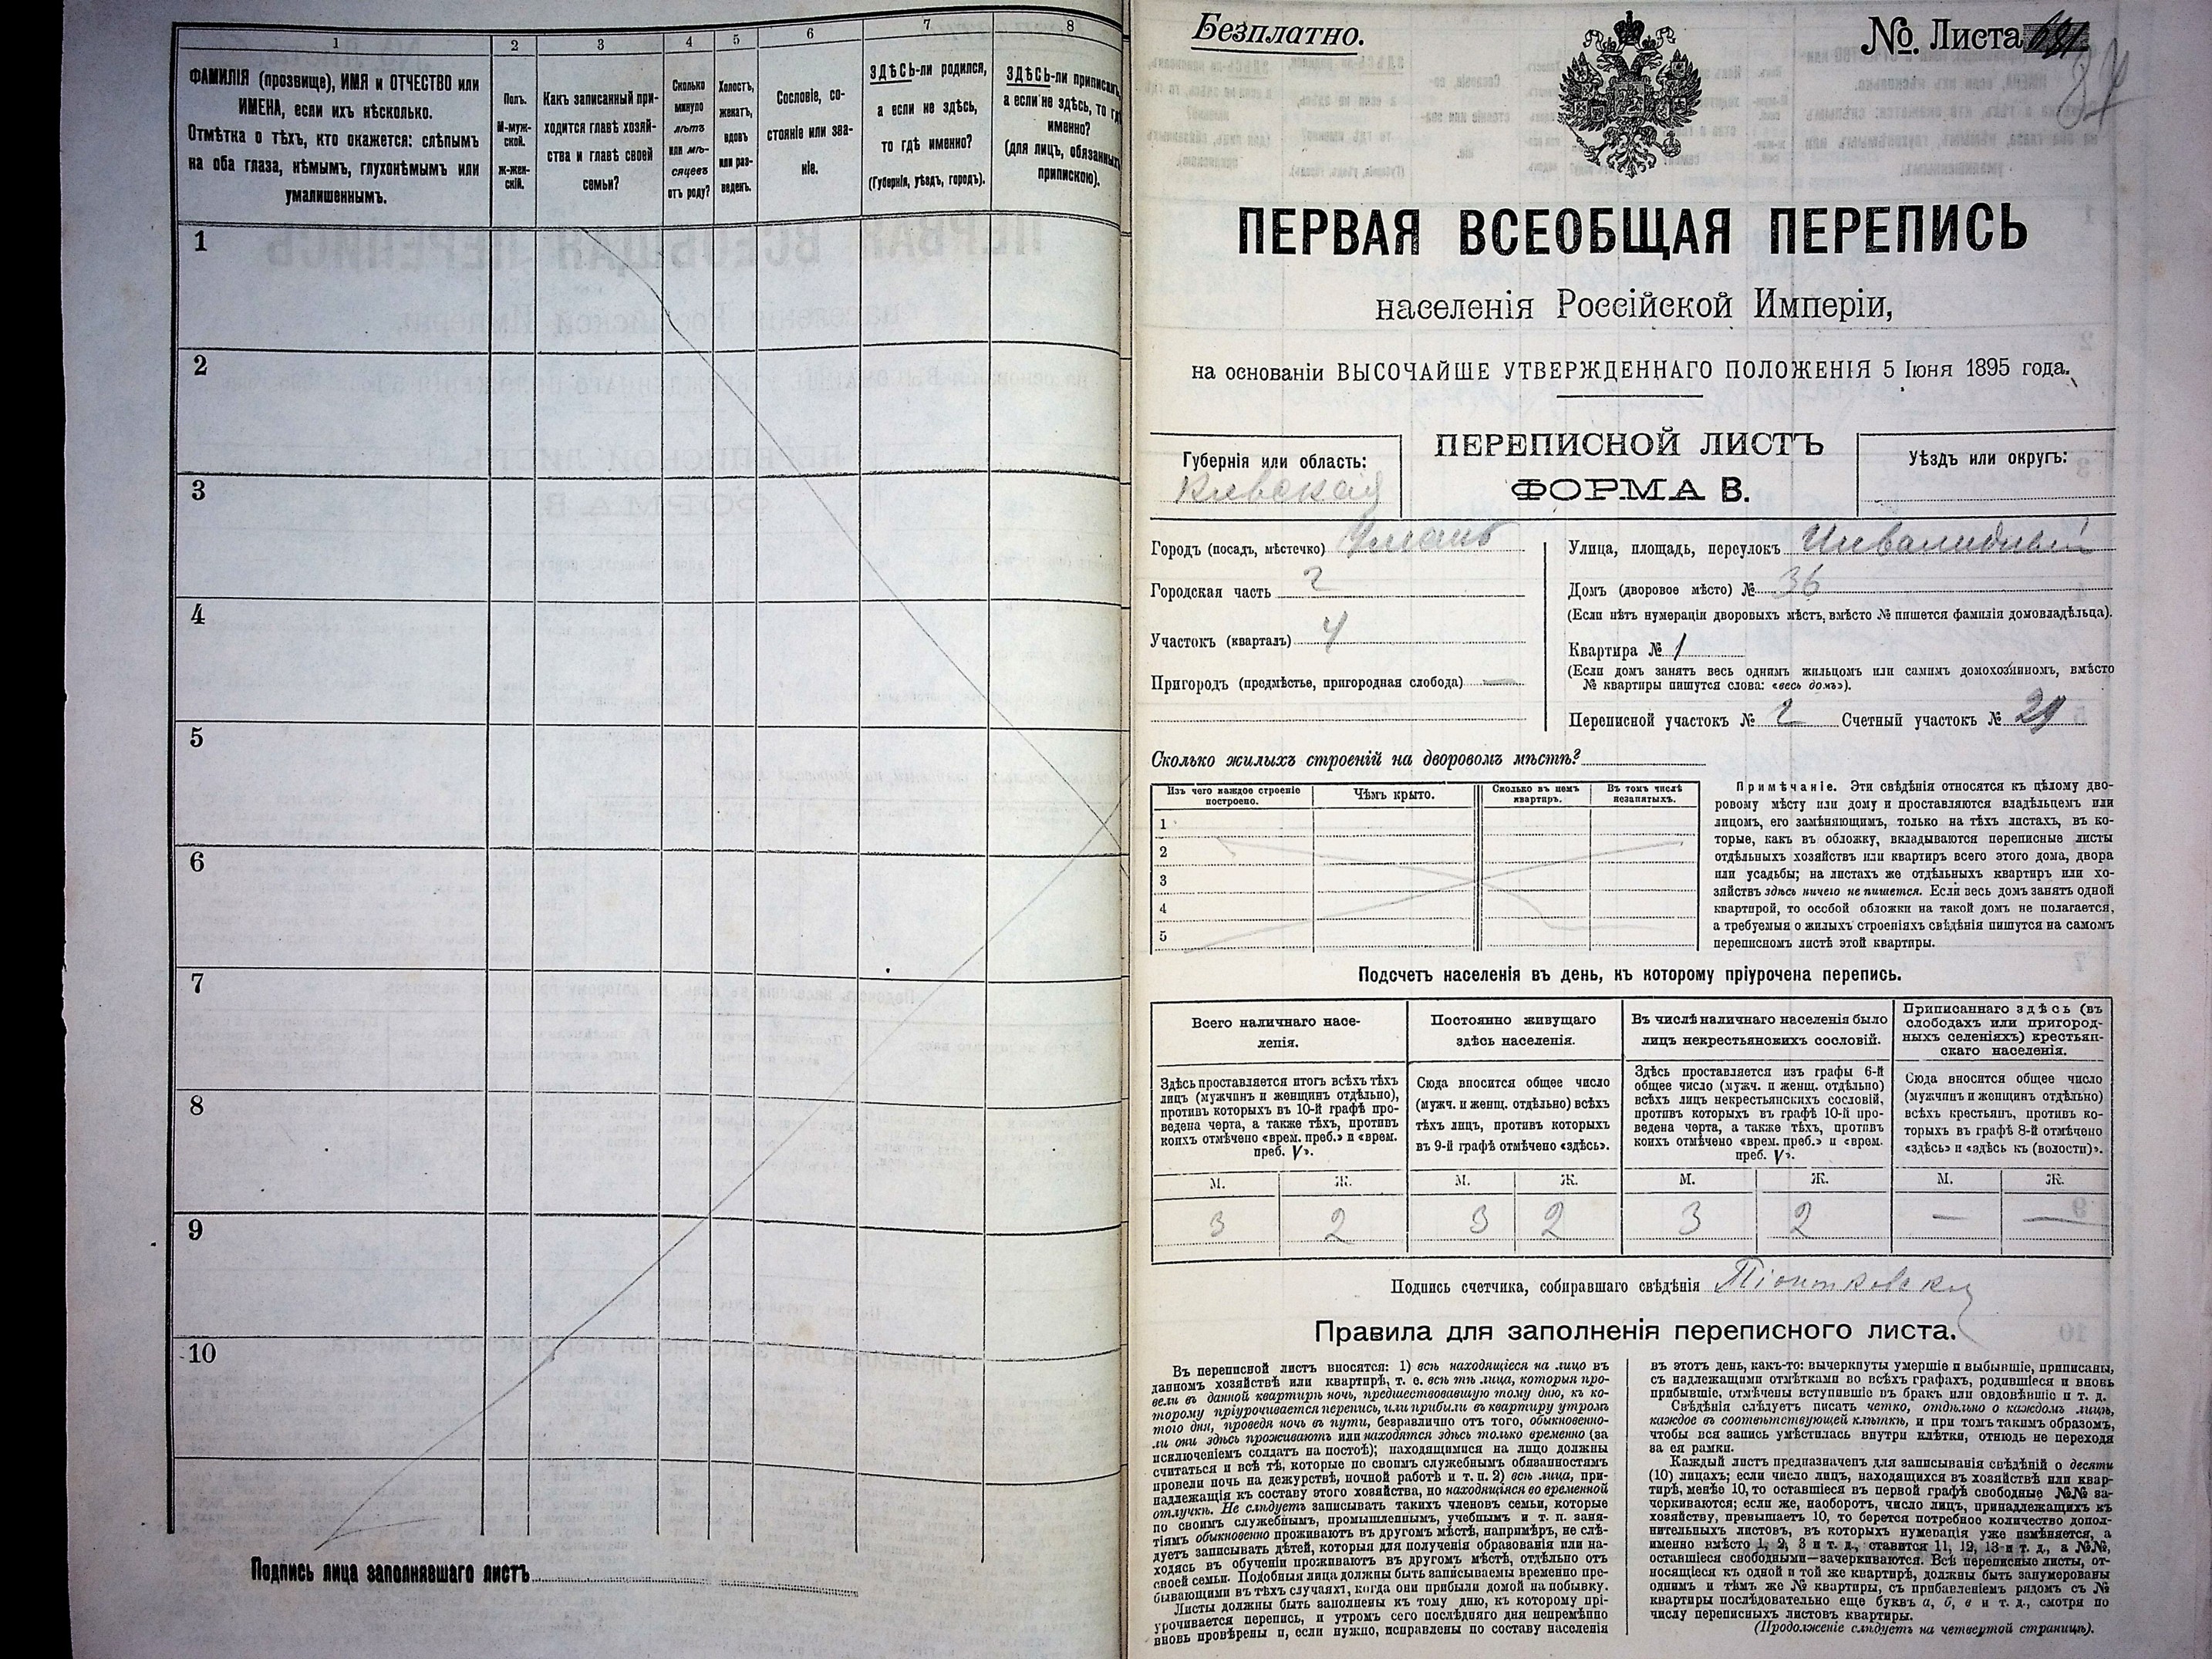 1
2
3
4
5
6
7
8
ФАМИЛІЯ (прозвище), ИМЯ и ОТЧЕСТВО или
ИМЕНА, если ихъ нѣсколько.
Отмѣтка о тѣхъ, кто окажется: слѣпымъ
на оба глаза, нѣмымъ, глухонѣмымъ или
умалишеннымъ.
Полъ.
М-муж-
ской.
Ж-жен-
скій.
Какъ записанный при-
ходится главѣ хозяй-
ства и главѣ своей
семьи?
Сколько
минуло
лѣтъ
или мѣ-
сяцевъ
отъ роду?
Холостъ,
женатъ,
вдовъ
или раз-
веденъ.
Сословіе, со-
стояніе или зва-
ніе.
ЗДѢСЬ-ли родился,
а если не здѣсь,
то гдѣ именно?
(Губернія, уѣздъ, городъ).
ЗДѢСЬ-ли приписанъ,
а если не здѣсь, то гдѣ
именно?
(для лицъ, обязанныхъ
припискою).
1
2
3
4
5
6
7
8
9
10
Подпись лица заполнявшаго листъ
Безплатно.
№. Листа
ПЕРВАЯ ВСЕОБЩАЯ ПЕРЕПИСЬ
населенія Россійской Имперіи,
на основаніи ВЫСОЧАЙШЕ УТВЕРЖДЕННАГО ПОЛОЖЕНІЯ 5 Іюня 1895 года.
Губернія или область:
Кіевская
ПЕРЕПИСНОЙ ЛИСТЪ
ФОРМА В.
Уѣздъ или округъ:
Городъ (посадъ, мѣстечко) Умань
Городская часть 2
Участокъ (кварталъ) 4
Пригородъ (предмѣстье, пригородная слобода) —
Улица, площадь, переулокъ Инвалидный
Домъ (дворовое мѣсто) № 36
(Если нѣтъ нумераціи дворовыхъ мѣстъ, вмѣсто № пишется фамилія домовладѣльца).
Квартира № 1
(Если домъ занятъ весь однимъ жильцомъ или самимъ домохозяиномъ, вмѣсто
№ квартиры пишутся слова: «весь домъ»).
Переписной участокъ № 2 Счетный участокъ №
Сколько жилыхъ строеній на дворовомъ мѣстѣ?
Изъ чего каждое строеніе
построено.
Чѣмъ крыто.
Сколько въ немъ
квартиръ.
Въ томъ числѣ
незанятыхъ.
1
2
3
4
5
Примѣчаніе. Эти свѣдѣнія относятся къ цѣлому дво-
ровому мѣсту или дому и проставляются владѣльцемъ или
лицомъ, его замѣняющимъ, только на тѣхъ листахъ, въ ко-
торые, какъ въ обложку, вкладываются переписные листы
отдѣльныхъ хозяйствъ или квартиръ всего этого дома, двора
или усадьбы; на листахъ же отдѣльныхъ квартиръ или хо-
зяйствъ здѣсь ничего не пишется. Если весь домъ занятъ одной
квартирой, то особой обложки на такой домъ не полагается,
а требуемыя о жилыхъ строеніяхъ свѣдѣнія пишутся на самомъ
переписномъ листѣ этой квартиры.
Подсчетъ населенія въ день, къ которому пріурочена перепись.
Всего наличнаго насе-
ленія.
Постоянно живущаго
здѣсь населенія.
Въ числѣ наличнаго населенія было
лицъ некрестьянскихъ сословій.
Приписаннаго здѣсь (въ
слободахъ или пригород-
ныхъ селеніяхъ) крестьян-
скаго населенія.
Здѣсь проставляется итогъ всѣхъ тѣхъ
лицъ (мужчинъ и женщинъ отдѣльно),
противъ которыхъ въ 10-й графѣ про-
ведена черта, а также тѣхъ, противъ
коихъ отмѣчено «врем. преб.» и «врем.
преб. V».
Сюда вносится общее число
(мужч. и женщ. отдѣльно) всѣхъ
тѣхъ лицъ, противъ которыхъ
въ 9-й графѣ отмѣчено «здѣсь».
Здѣсь проставляется изъ графы 6-й
общее число (мужч. и женщ. отдѣльно)
всѣхъ лицъ некрестьянскихъ сословій,
противъ которыхъ въ графѣ 10-й про-
ведена черта, а также тѣхъ, противъ
коихъ отмѣчено «врем. преб.» и «врем.
преб. V».
Сюда вносится общее число
(мужчинъ и женщинъ отдѣльно)
всѣхъ крестьянъ, противъ ко-
торыхъ въ графѣ 8-й отмѣчено
«здѣсь» и «здѣсь къ (волости)».
М. Ж. М. Ж. М. Ж. М. Ж.
3 2 3 2 3 2 — —
Подпись счетчика, собиравшаго свѣдѣнія
Правила для заполненія переписного листа.
Въ переписной листъ вносятся: 1) всѣ находящіеся на лицо въ
данномъ хозяйствѣ или квартирѣ, т. е. всѣ тѣ лица, которыя про-
вели въ данной квартирѣ ночь, предшествовавшую тому дню, къ ко-
торому пріурочивается перепись, или прибыли въ квартиру утромъ
того дня, проведя ночь въ пути, безразлично отъ того, обыкновенно-
ли они здѣсь проживаютъ или находятся здѣсь только временно (за
исключеніемъ солдатъ на постоѣ); находящимися на лицо должны
считаться и всѣ тѣ, которые по своимъ служебнымъ обязанностямъ
провели ночь на дежурствѣ, ночной работѣ и т. п. 2) всѣ лица, при-
надлежащія къ составу этого хозяйства, но находящіяся во временной
отлучкѣ. Не слѣдуетъ записывать такихъ членовъ семьи, которые
по своимъ служебнымъ, промышленнымъ, учебнымъ и т. п. заня-
тіямъ обыкновенно проживаютъ въ другомъ мѣстѣ, напримѣръ, не слѣ-
дуетъ записывать дѣтей, которыя для полученія образованія или на-
ходясь въ обученіи проживаютъ въ другомъ мѣстѣ, отдѣльно отъ
своей семьи. Подобныя лица должны быть записываемы временно пре-
бывающими въ тѣхъ случаяхъ, когда они прибыли домой на побывку.
Листы должны быть заполнены къ тому дню, къ которому прі-
урочивается перепись, и утромъ сего послѣдняго дня непремѣнно
вновь провѣрены и, если нужно, исправлены по составу населенія
въ этотъ день, какъ-то: вычеркнуты умершіе и выбывшіе, приписаны,
съ надлежащими отмѣтками во всѣхъ графахъ, родившіеся и вновь
прибывшіе, отмѣчены вступившіе въ бракъ или овдовѣвшіе и т. д.
Свѣдѣнія слѣдуетъ писать четко, отдѣльно о каждомъ лицѣ,
каждое въ соотвѣтствующей клѣткѣ, и при томъ такимъ образомъ,
чтобы вся запись умѣстилась внутри клѣтки, отнюдь не переходя
за ея рамки.
Каждый листъ предназначенъ для записыванія свѣдѣній о десяти
(10) лицахъ; если число лицъ, находящихся въ хозяйствѣ или квар-
тирѣ, менѣе 10, то оставшіеся въ первой графѣ свободные №№ за-
черкиваются; если же, наоборотъ, число лицъ, принадлежащихъ къ
хозяйству, превышаетъ 10, то берется потребное количество допол-
нительныхъ листовъ, въ которыхъ нумерація уже измѣняется, а
именно вмѣсто 1, 2, 3 и т. д., ставится 11, 12, 13 и т. д., а №№,
оставшіеся свободными—зачеркиваются. Всѣ переписные листы, от-
носящіеся къ одной и той же квартирѣ, должны быть занумерованы
однимъ и тѣмъ же № квартиры, съ прибавленіемъ рядомъ съ №
квартиры послѣдовательно еще буквъ а, б, в и т. д., смотря по
числу переписныхъ листовъ квартиры.
(Продолженіе слѣдуетъ на четвертой страницѣ).